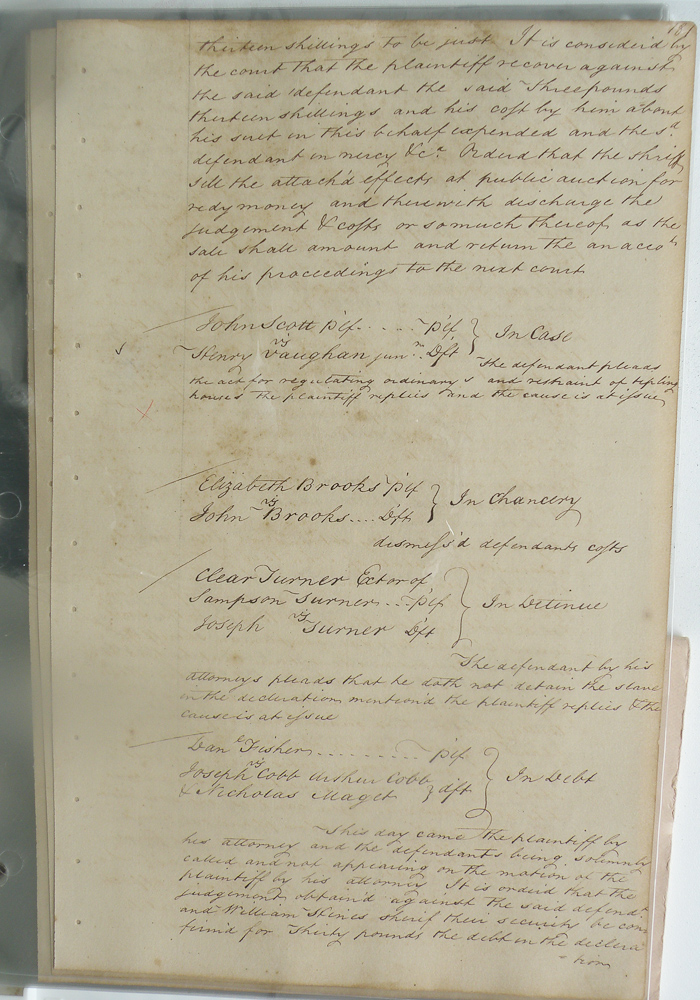 thirteen shillings to be just It is considerd by
the court that the plaintiff recover against
the said defendant the said Three pounds
thirteen shillings and his cost by him about
his suit in this behalf expended and the sd
defendant in mercy &ca Orderd that the sheriff
sell the attach'd effects at public auction for
redy money and therewith discharge the
judgement & costs or so much thereof as the
sale shall amount and return the an accots
of his proceedings to the next court
John Scott plf...... plf } In Case
vs
Henry Vaughan junr.. Dft
The defendant pleads
the act for regulating ordinary s and restraint of tipling
houses the plaintiff replies and the cause is at issue
Elizabeth Brooks plf } In Chancery
vs
John Brooks.... Dft
dismiss'd defendants costs
Clear Turner Exctor of
Sampson Turner... plf } In Detinue
vs
Joseph Turner Dft
The defendant by his
attorneys pleads that he doth not detain the slave
in the decleration mention'd the plaintiff replies & the
cause is at issue
Danl Fisher............ plf
vs
Joseph Cobb Arthur Cobb } In Debt
& Nicholas Maget } dft
This day came the plaintiff by
his attorney and the defendants being solemnly
called and not appearing on the motion of the
plaintiff by his attorney It is orderd that the
judgement obtain'd against the said defendt
and William sherif their security be con
firm'd for Thirty pounds the debt in the declera
tion